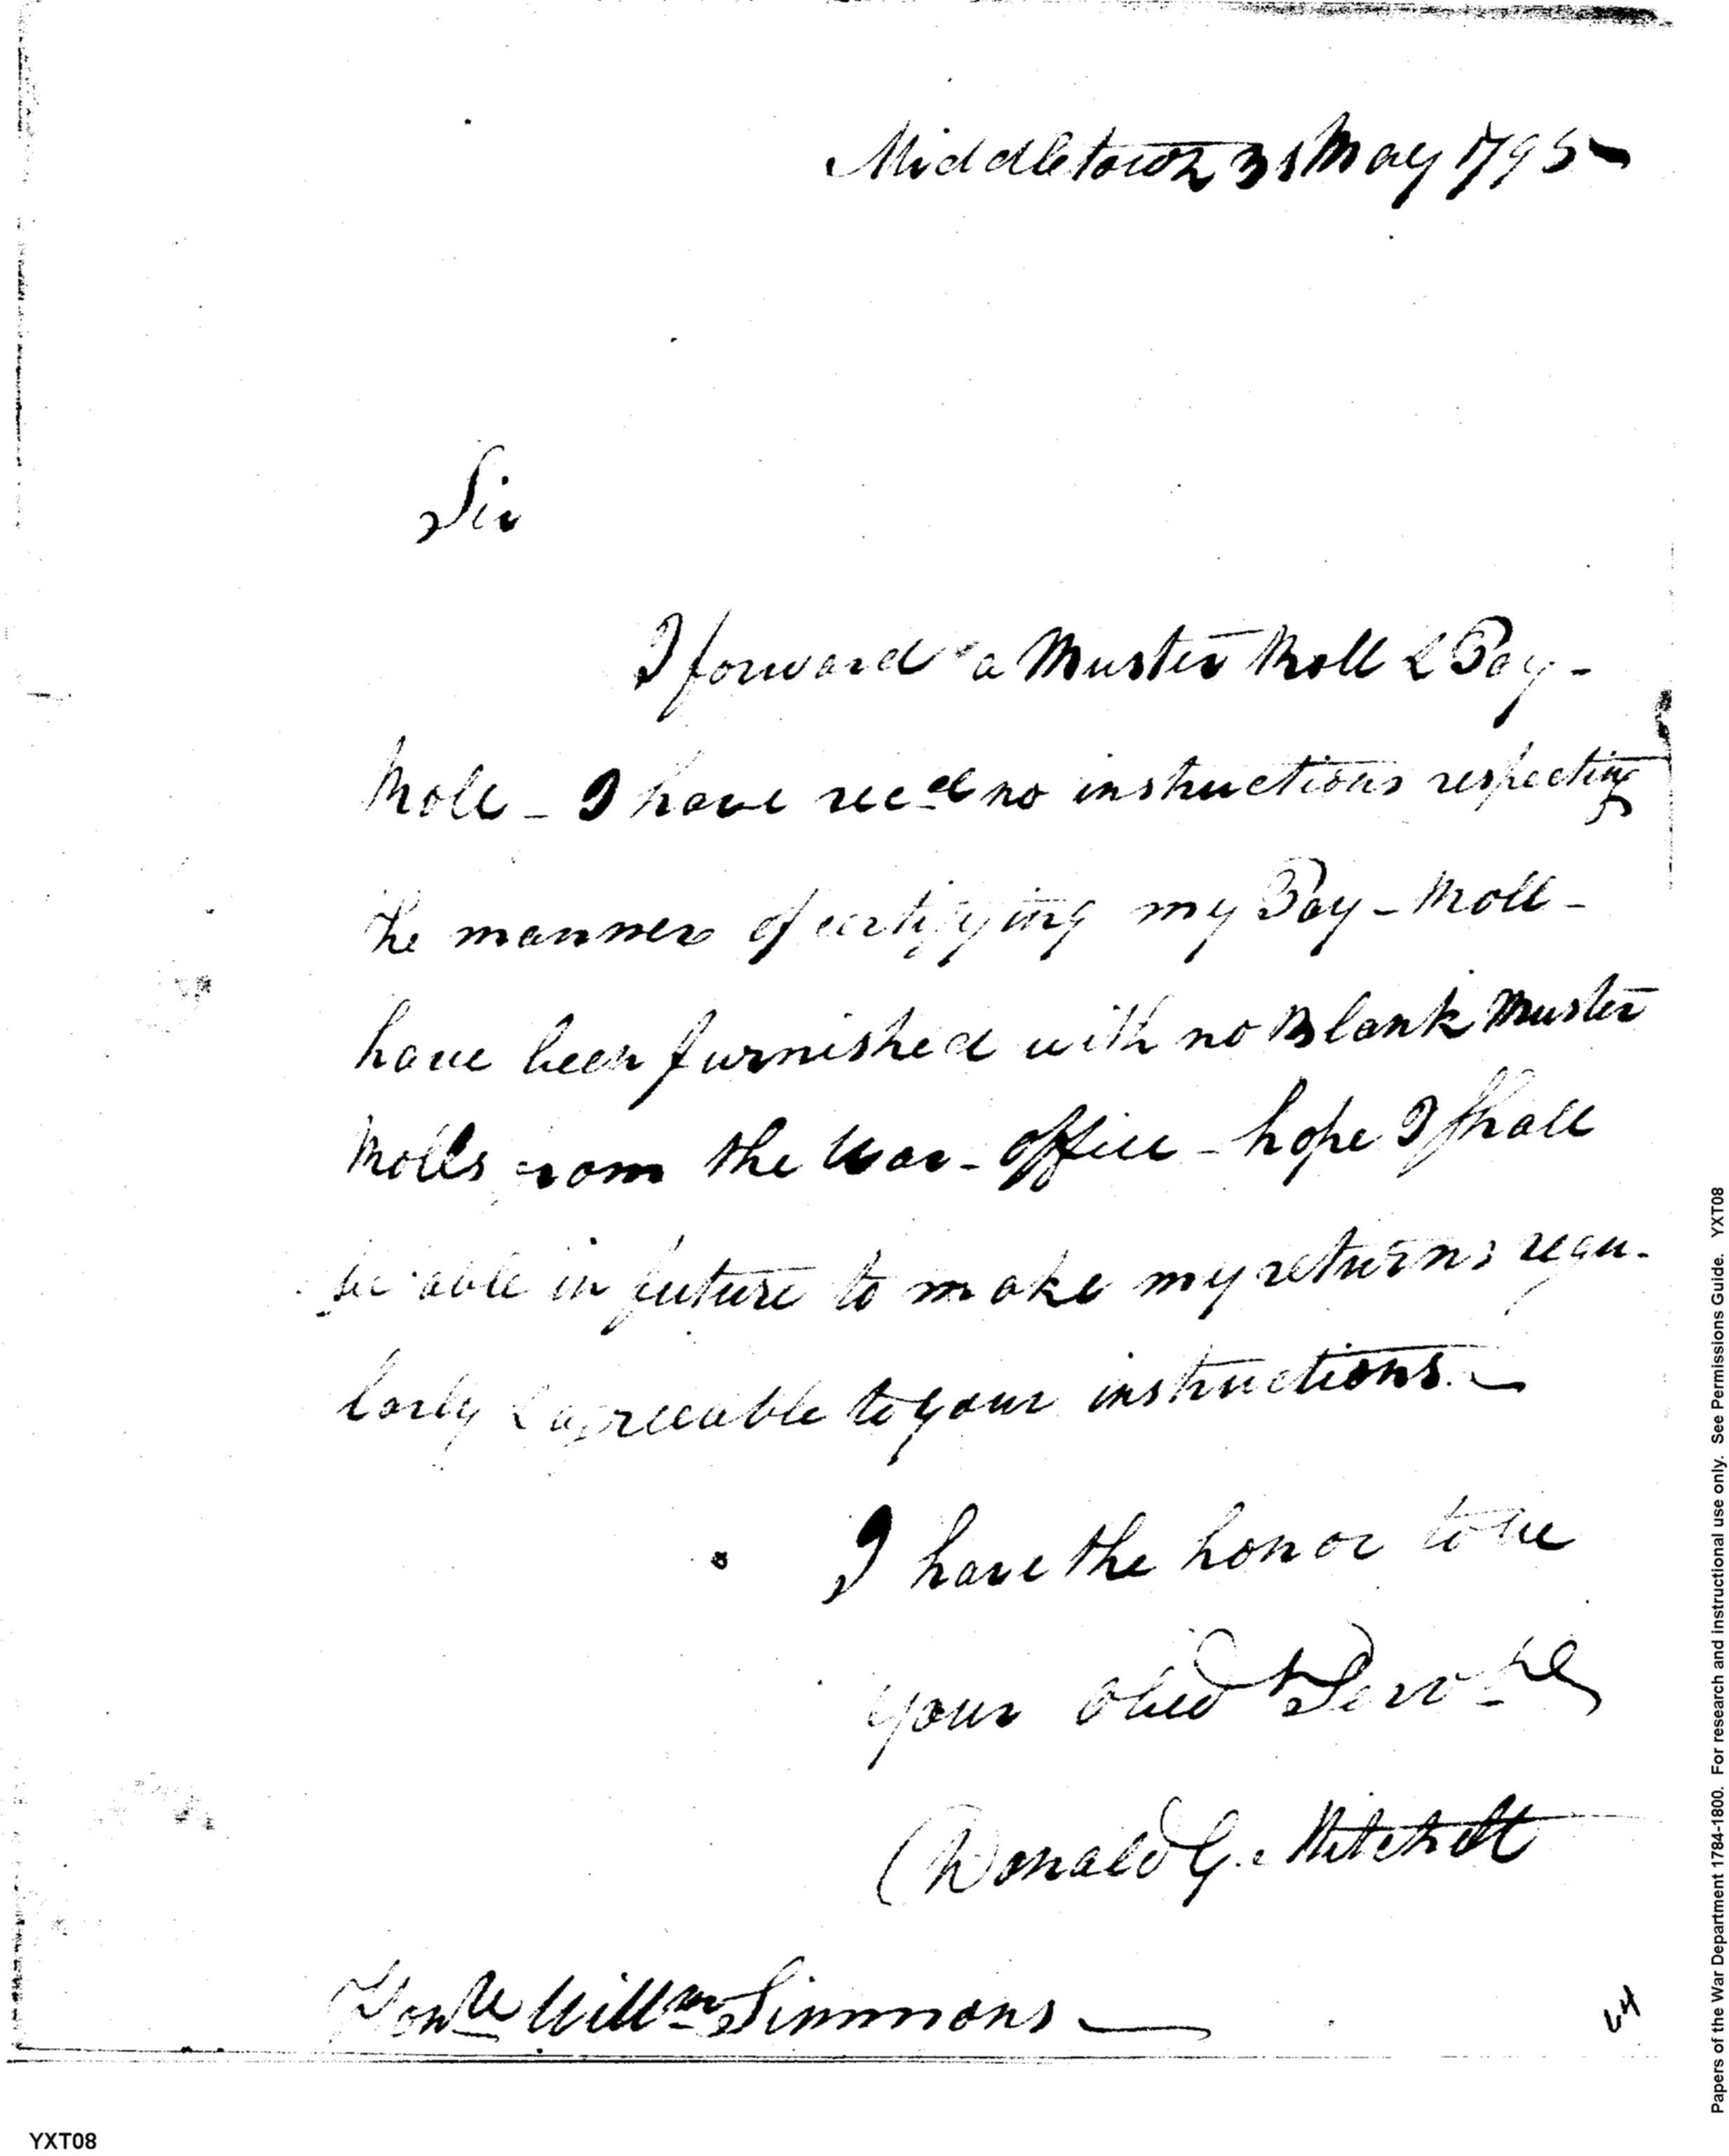 Middletown 31 May 1795
Sir
I forward a Muster Roll & Pay-
Roll - I have recd no instructions respecting
the manner of certifying my Pay-Roll -
have been furnished with no Blank Muster
Rolls from the War-office - hope I shall
be able in future to make my returns regu-
larly & agreeable to your instructions.
I have the honor to be
your Obedt Servt
Donald G. Mitchell
Honble Willm Simmons
44
YXT08
Papers of the War Department 1784-1800. For research and instructional use only. See Permissions Guide. YXT08